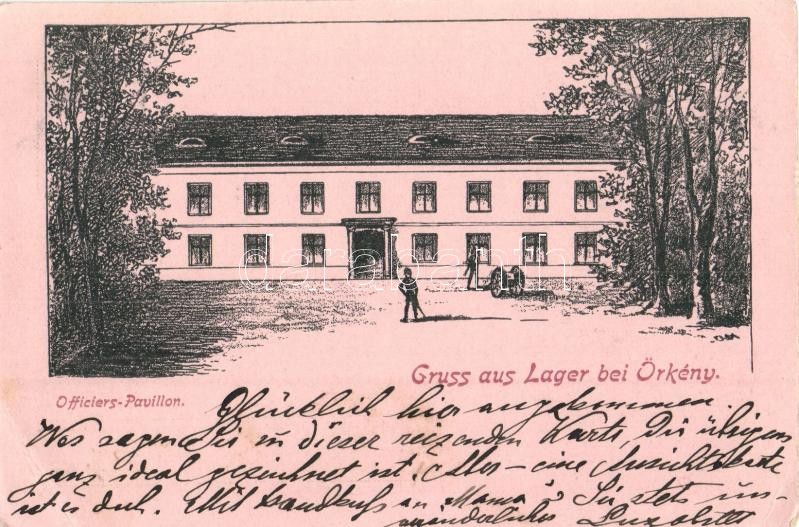 darabanth
Officiers-Pavillon.
Gruss aus Lager bei Örkény.
Glücklich hier angekommen.
Was sagen Sie zu dieser reizenden Karte, die übrigens
ganz ideal gezeichnet ist. Aber – eine Ansichtskarte
ist es doch. Mit Handkuss an Mama u Sie stets un-